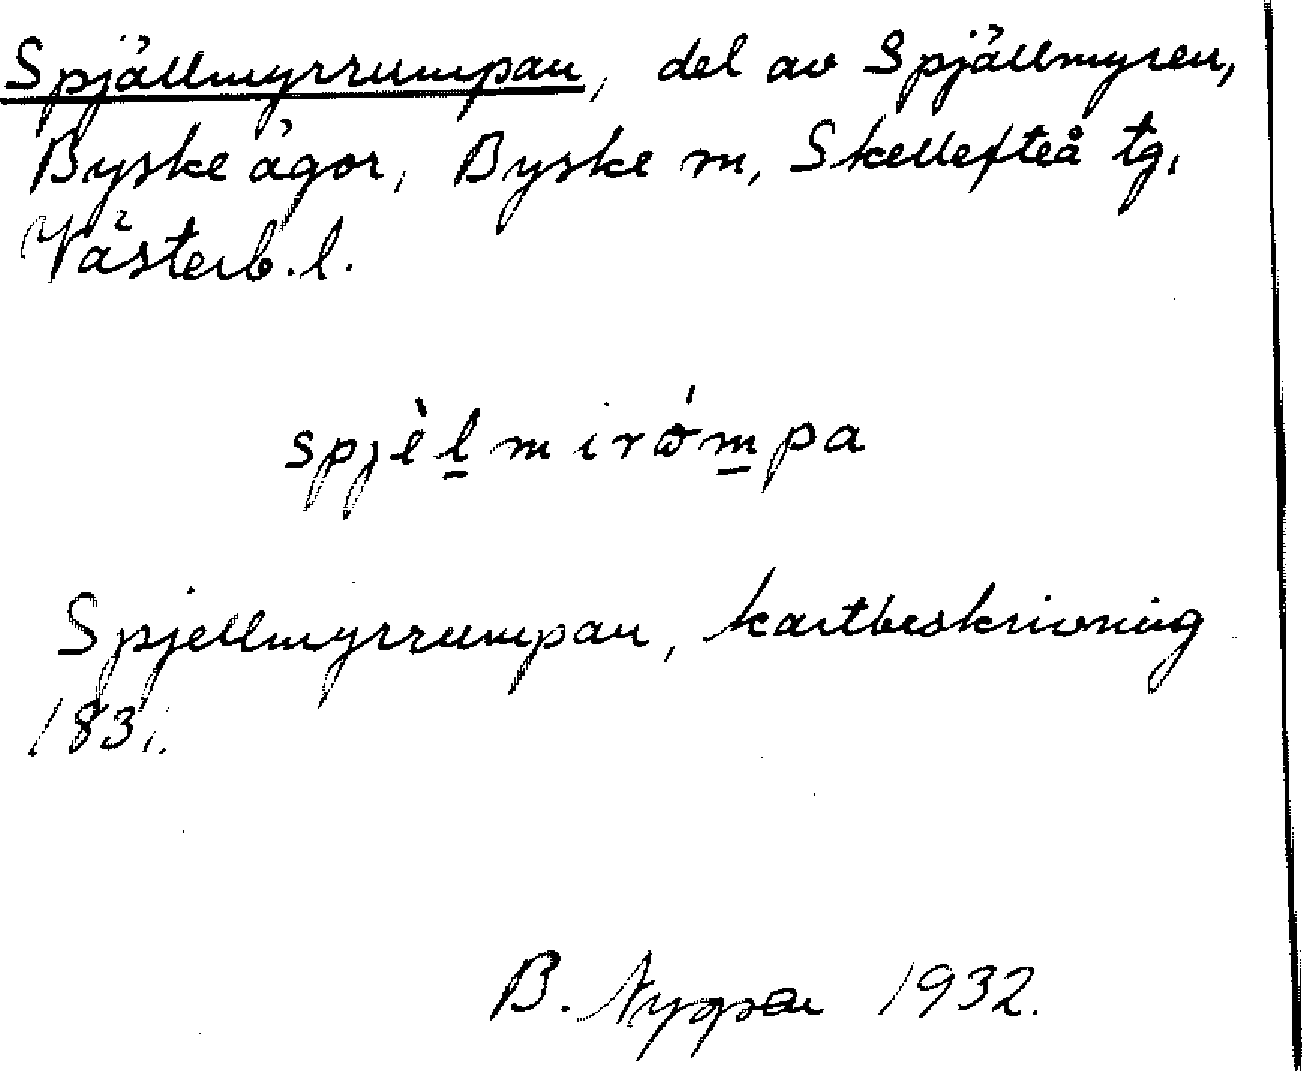 Spjällmyrrumpan, del av Spjällmyren,
Byske ägor, Byske sn, Skellefteå tg,
Västerb. l.
spjèl̲mirǿm̲pa
Spjellmyrrumpan, kartbeskrivning
1831.
B. 1932.